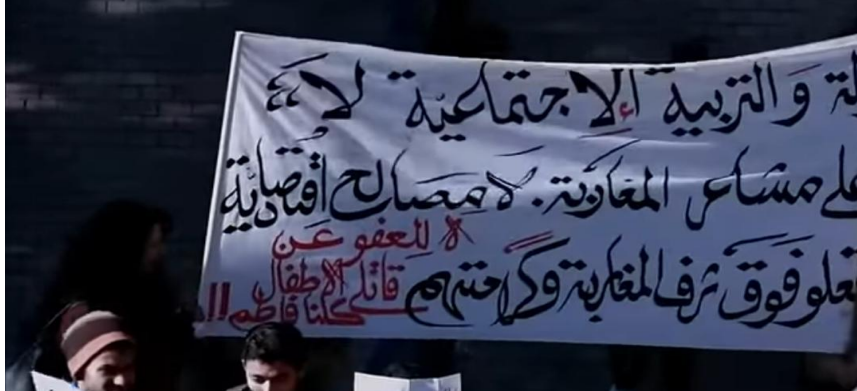 والتربية الاجتماعية لا
على مشاعر المغاربة. لا مصالح اقتصادية
تعلو فوق شرف المغاربة وكرامتهم
لا للعفو عن
قاتلي الاطفال
كلنا فاطم!!